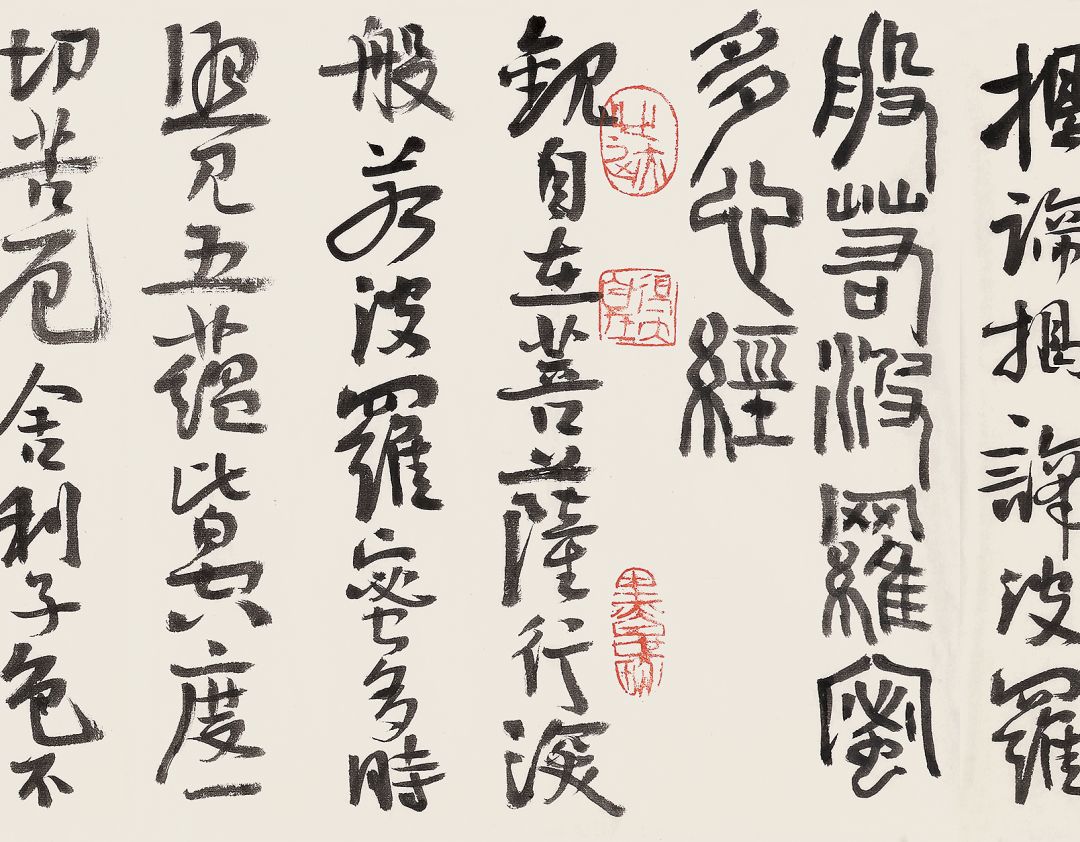 揭諦揭諦波羅
般若波羅蜜
多心經
得大自在
觀自在菩薩行深
般若波羅蜜多時
照見五蘊皆空度一
切苦厄舍利子色不